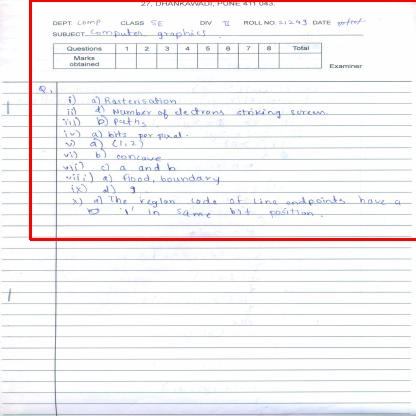 27, DHANKAWADI, PUNE 411 043.
DEPT. Comp CLASS SE DIV II ROLL NO. 21243 DATE
SUBJECT Computer graphics
Questions 1 2 3 4 5 6 7 8 Total
Marks obtained
Examiner
Q.1
i) a) Rasterisation
ii) d) Number of electrons striking screen
iii) b) Paths
iv) a) bits per pixel.
v) a) (1,2)
vi) b) concave
vii) c) a and b
viii) a) flood, boundary
ix) d) 9
x) a) The region code of line endpoints have a
'1' in same bit position.